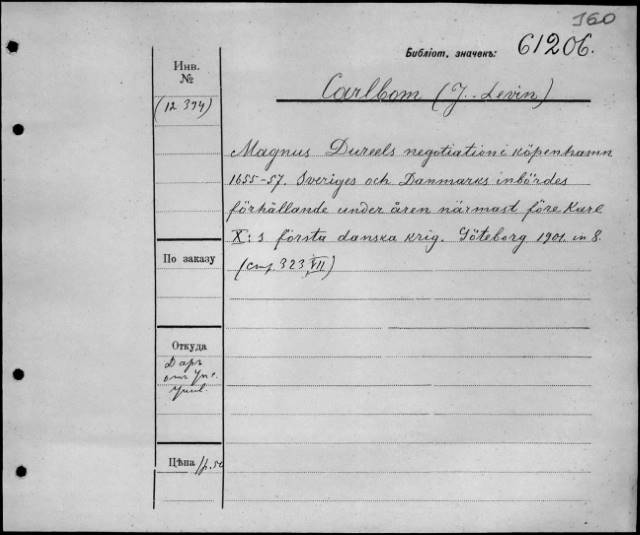 160
Библіот. значекъ: 61206.
Инв.
№
(12 394)
Carlbom (J. Levin)
Magnus Dureels negotiation i köpenhamn
1655-57. Sveriges och Danmarks inbördes
förhållande under åren närmast före Karl
X:s första danska krig. Göteborg 1901. in 8.
(стр. 323, VII)
По заказу
Откуда
Даръ
отъ Уп.
Унив.
Цѣна 1 р. 50